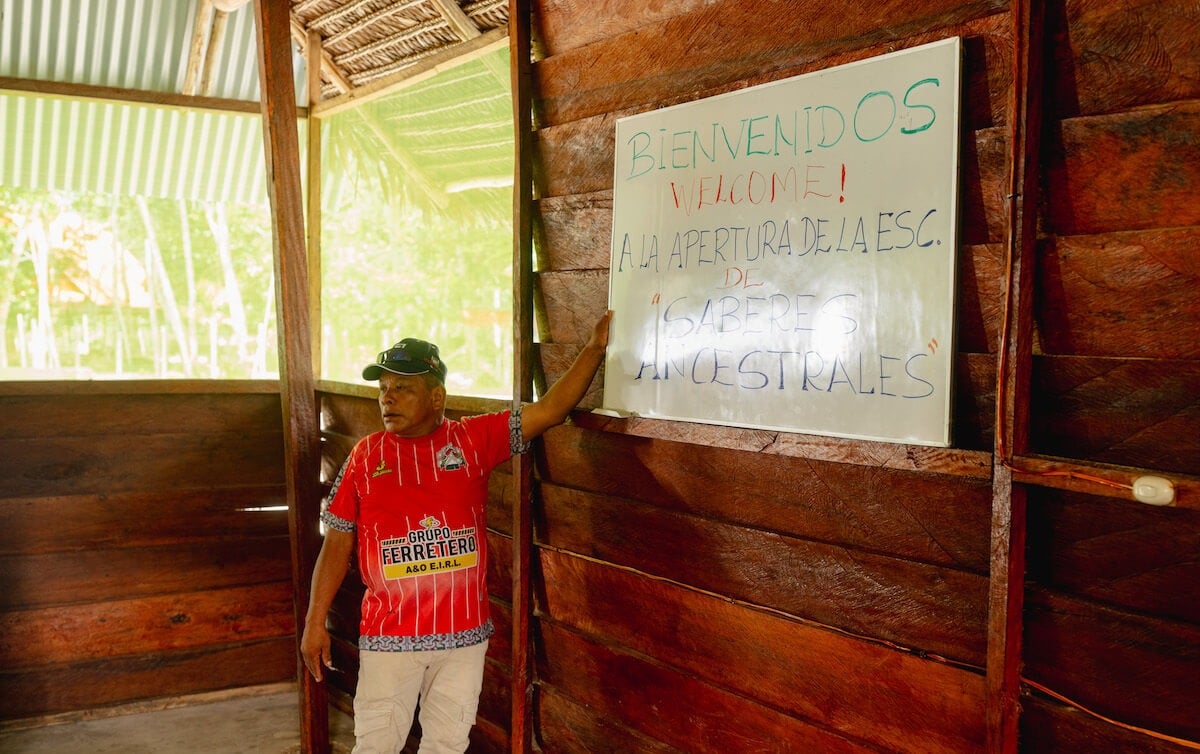 BIENVENIDOS
WELCOME!
A LA APERTURA DE LA ESC.
DE
"SABERES
ANCESTRALES"
GRUPO
FERRETERO
A&O E.I.R.L.